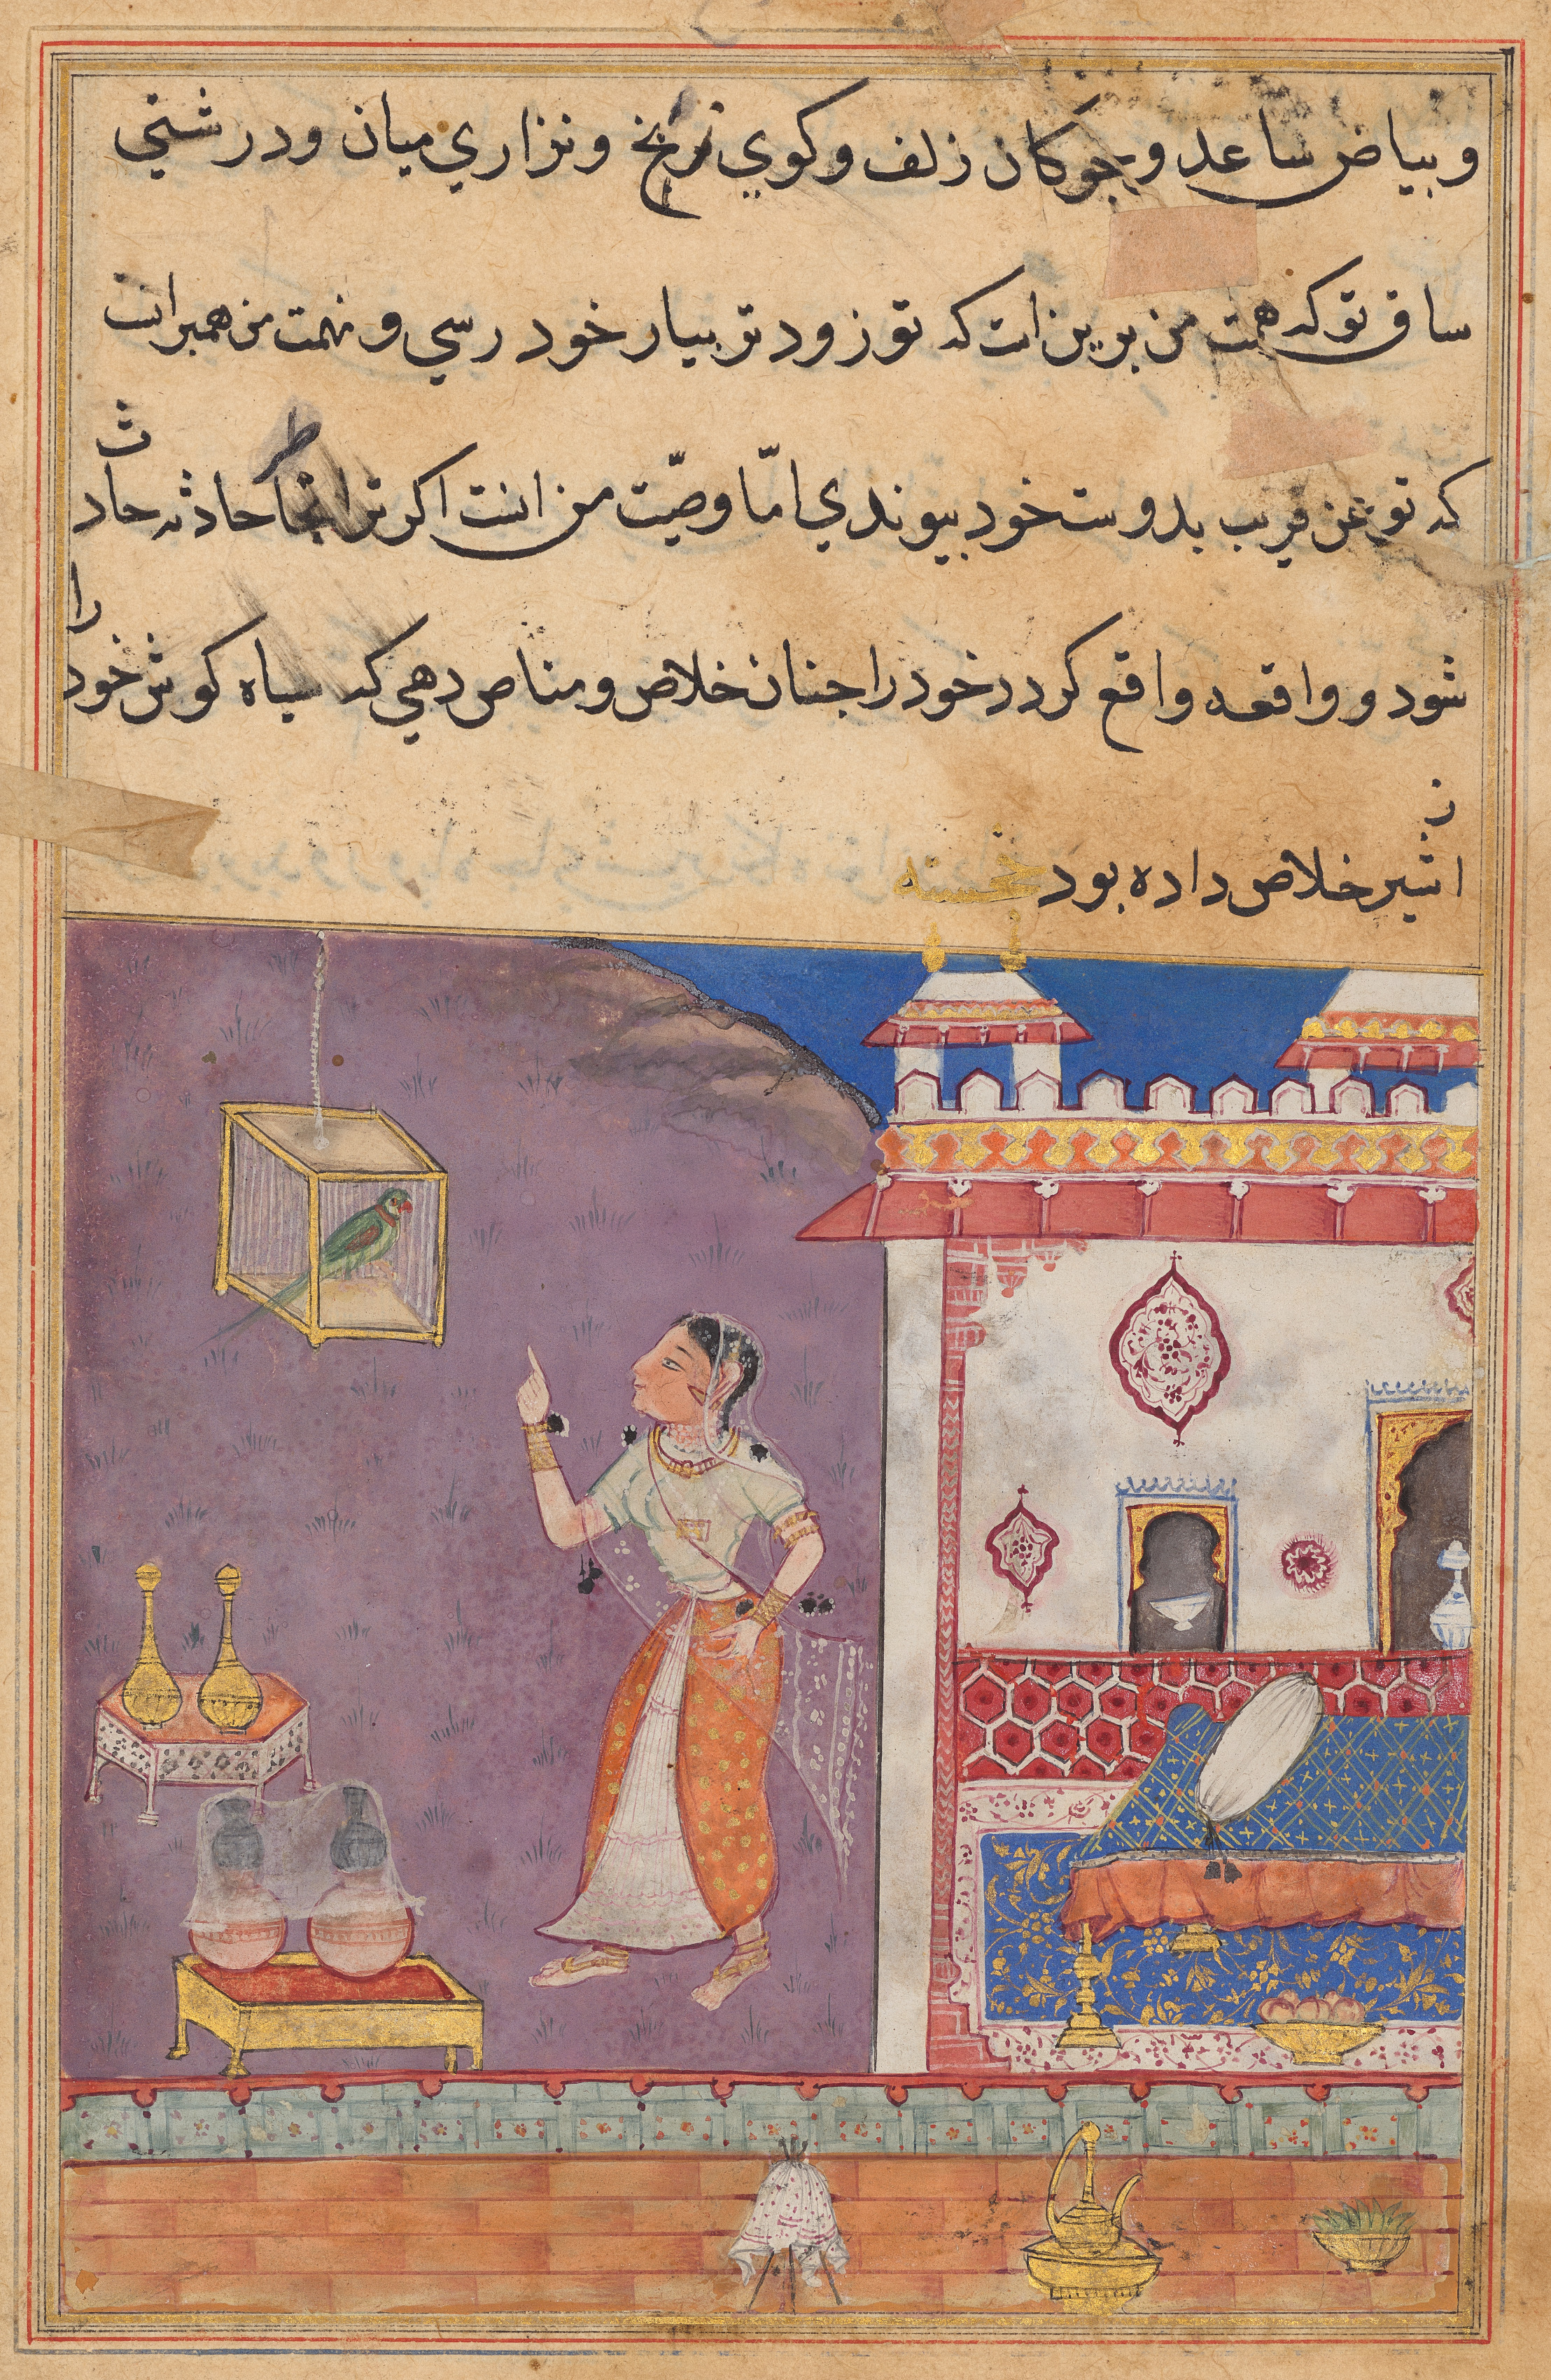 و بیاض ساعد و جوکان زلف و کوي زنخ و نزاري میان و درشتي
ساق تو که همت من برین است که تو زود تر بیار خود رسي و نهمت من همبر انست
که تو عن قریب بدوست خود بپیوندي امّا وصیّت من انست اکر ترا انجا حادثه حادث
شود و واقعه واقع کردد خود را جنان خلاص و مناص دهي که سیاه کوش خود را
از شیر خلاص داده بود خجسته